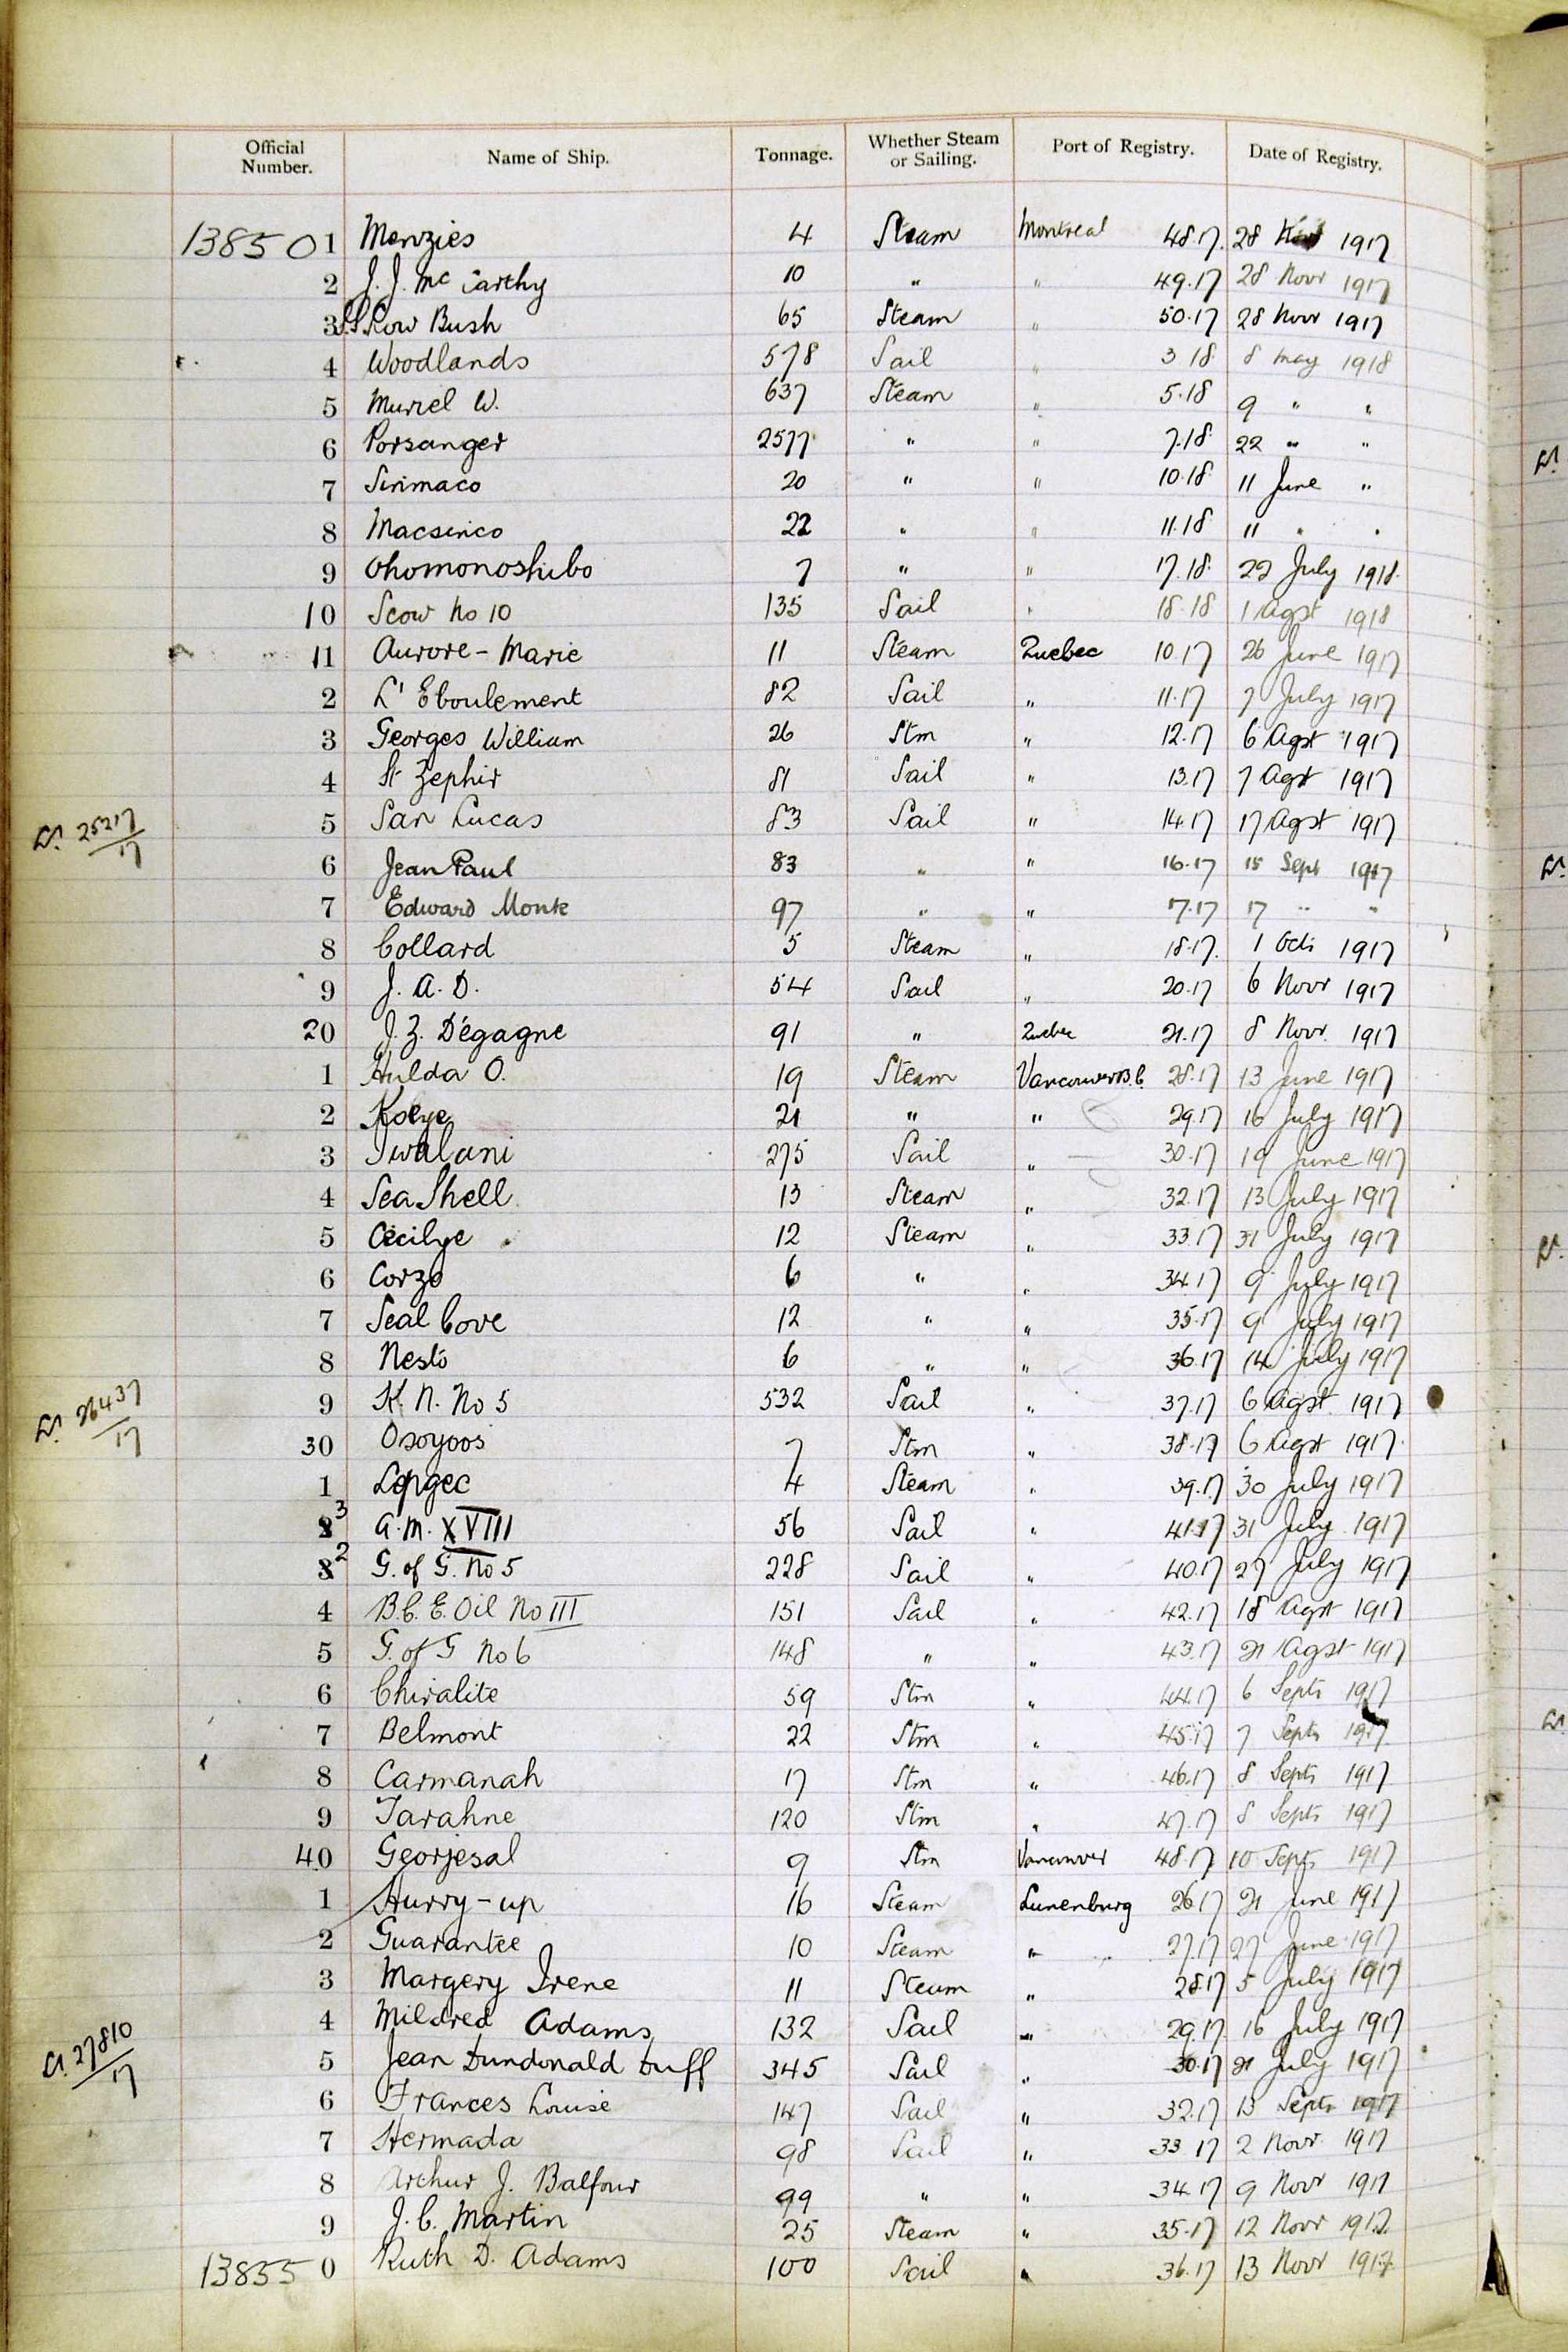 Official Number. Name of Ship. Tonnage. Whether Steam or Sailing. Port of Registry. Date of Registry.
138501 Menzies 4 Steam Montreal 48.17. 28 1917
2 J. J. McCarthy 10 " " 49.17 28 Novr 1917
3 Scow Bush 65 Steam " 50.17 28 Novr 1917
4 Woodlands 578 Sail " 3 18 8 May 1918
5 Muriel W. 637 Steam " 5.18 9 " "
6 Porsanger 2577 " " 7.18 22 " "
7 Sinmaco 20 " " 10.18 11 June "
8 Macsinco 22 " " 11.18 11 " "
9 Ohomonoshibo 7 " " 17.18 22 July 1918
10 Scow No 10 135 Sail " 18.18 1 Agst 1918
11 Aurore-Marie 11 Steam Quebec 10.17 26 June 1917
2 L'Eboulement 82 Sail " 11.17 7 July 1917
3 Georges William 26 Stm " 12.17 6 Agst 1917
4 St Zephir 81 Sail " 13.17 7 Agst 1917
Ex. 25217/17
5 San Lucas 83 Sail " 14.17 17 Agst 1917
6 Jean Paul 83 " " 16.17 15 Sept 1917
7 Edward Monk 97 " " 17.17 17 " "
8 Collard 5 Steam " 18.17. 1 Oct 1917
9 J. A. D. 54 Sail " 20.17 6 Novr 1917
20 J. Z. Dégagne 91 " Quebec 21.17 8 Novr. 1917
1 Hulda O. 19 Steam Vancouver B.C. 28.17 13 June 1917
2 Koeye 21 " " 29.17 16 July 1917
3 Iwalani 275 Sail " 30.17 19 June 1917
4 Sea Shell 13 Steam " 32.17 13 July 1917
5 Cecilye 12 Steam " 33.17 31 July 1917
6 Corzo 6 " " 34.17 9 July 1917
7 Seal Cove 12 " " 35.17 9 July 1917
8 Nesto 6 " " 36.17 14 July 1917
26437/17
9 K. N. No 5 532 Sail " 37.17 6 Agst 1917
30 Osoyoos 7 Stm " 38.17 6 Agst 1917
1 Lepgec 4 Steam " 39.17 30 July 1917
3 A.M. XVIII 56 Sail " 41.17 31 July 1917
2 G. of G. No 5 228 Sail " 40.17 27 July 1917
4 B.C.E. Oil No III 151 Sail " 42.17 18 Agst 1917
5 G. of G No 6 148 " " 43.17 21 Agst 1917
6 Chiralite 59 Stm " 44.17 6 Septr 1917
7 Belmont 22 Stm " 45.17 7 Septr 1917
8 Carmanah 17 Stm " 46.17 8 Septr 1917
9 Tarahne 120 Stm " 47.17 8 Septr 1917
40 Georjesal 9 Stm Vancouver 48.17 10 Septr 1917
1 Hurry-up 16 Steam Lunenburg 26.17 21 June 1917
2 Guarantee 10 Steam " 27.17 27 June 1917
3 Margery Irene 11 Steam " 28.17 5 July 1917
4 Mildred Adams 132 Sail " 29.17 16 July 1917
27810/17
5 Jean Dundonald Duff 345 Sail " 30.17 21 July 1917
6 Frances Louise 147 Sail " 32.17 13 Septr 1917
7 Hermada 98 Sail " 33.17 2 Novr 1917
8 Arthur J. Balfour 99 " " 34.17 9 Novr 1917
9 J. C. Martin 25 Steam " 35.17 12 Novr 1917
138550 Ruth D. Adams 100 Sail " 36.17 13 Novr 1917